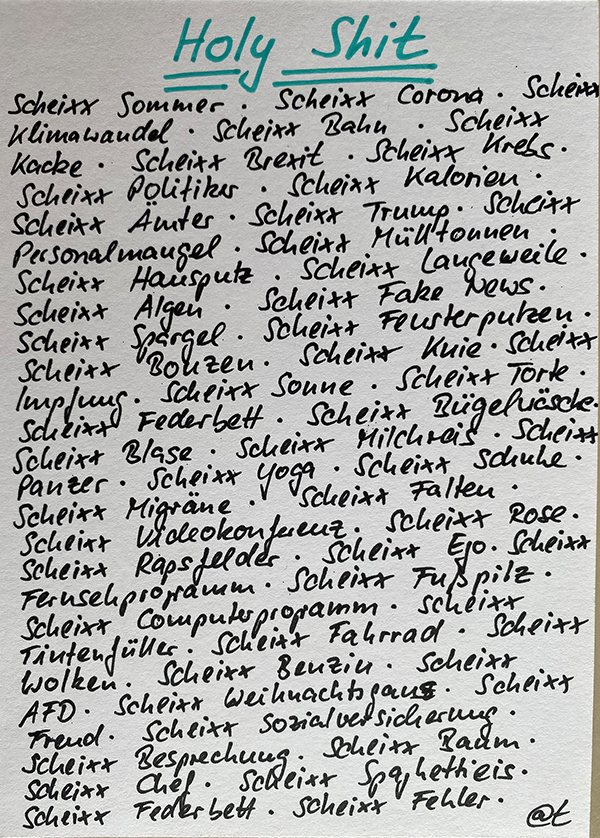 Holy Shit
Scheixx Sommer · Scheixx Corona · Scheixx
Klimawandel · Scheixx Bahn · Scheixx
Kacke · Scheixx Brexit · Scheixx Krebs ·
Scheixx Politiker · Scheixx Kalorien ·
Scheixx Ämter · Scheixx Trump · Scheixx
Personalmangel · Scheixx Mülltonnen ·
Scheixx Hausputz · Scheixx Langeweile ·
Scheixx Algen · Scheixx Fake News ·
Scheixx Spargel · Scheixx Fensterputzen ·
Scheixx Bonzen · Scheixx Knie · Scheixx
Impfung · Scheixx Sonne · Scheixx Torte ·
Scheixx Federbett · Scheixx Bügelwäsche ·
Scheixx Blase · Scheixx Milchreis · Scheixx
Panzer · Scheixx Yoga · Scheixx Schuhe ·
Scheixx Migräne · Scheixx Falten ·
Scheixx Videokonferenz · Scheixx Rose ·
Scheixx Rapsfelder · Scheixx Ego · Scheixx
Fernsehprogramm · Scheixx Fußpilz ·
Scheixx Computerprogramm · Scheixx
Tintenfüller · Scheixx Fahrrad · Scheixx
Wolken · Scheixx Benzin · Scheixx
AFD · Scheixx Weihnachtsgans · Scheixx
Freud · Scheixx Sozialversicherung ·
Scheixx Besprechung · Scheixx Baum ·
Scheixx Chef · Scheixx Spaghettieis ·
Scheixx Federbett · Scheixx Fehler ·
@t